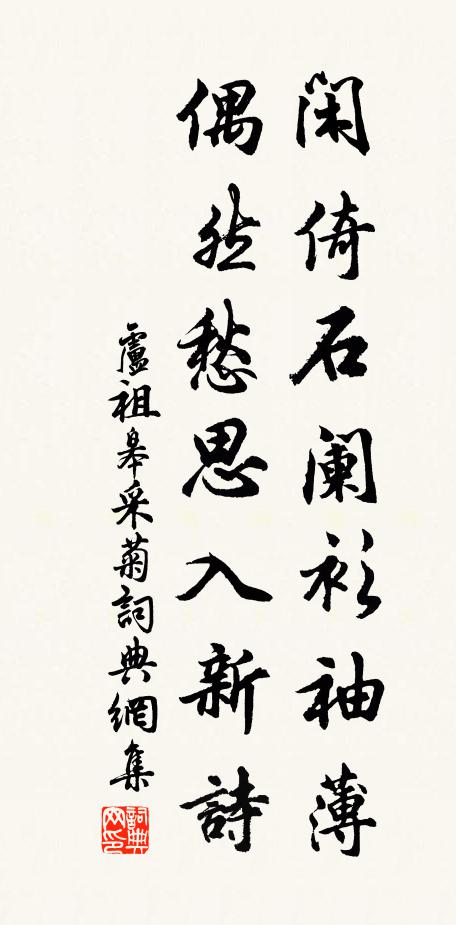 闲倚石阑衫袖薄
偶然愁思入新詩
盧祖皋采菊詞典網集
詞典网印